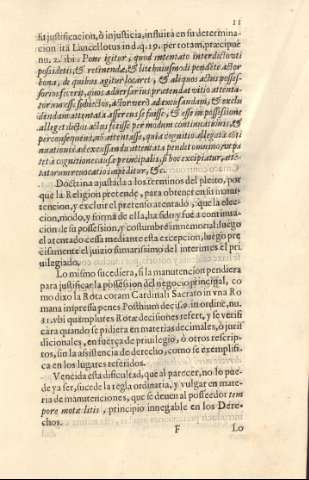 11
sa justificacion, ò injusticia, insistirà en su determina-
cion ità Lancellotus in d. q. 19. per totam, præcipuè
nu. 2. ibi: Pone igitur, quod intentato interdicto uti
possidetis, & retinendæ, & lite huiusmodi pendẽte actor
bona, de quibus agitur locaret, & aliquos actus posses-
sorios fecerit, quos adversarius prætendat vitio attenta-
torum esse subiectos, actor verò ad excusandam, & exclu
dendam attentata asserens se fuisse, & esse in possessione
alleget dictos actus fecisse per modum continuationis, &
per consequens, nõ attentasse, quia cognitio allegatæ cõti
nuationis ad excusandum attentata pendet omnino, turpa
tet à cognitione causæ principalis, si hoc excipiatur, atte-
tatorum revocatio impeditur, &c.
Doctrina ajustada a los terminos del pleito, por
que la Religion pretende, para obtener en su manu-
tencion, y excluir el pretenso atentado, que la elec-
cion, modo, y forma de ella, ha sido y fue à continua-
cion de su possession, y costumbre inmemorial: luego
el atentado cessa mediante esta excepcion, luego pre
cisamente el juizio sumarissimo del interimes el pri
vilegiado.
Lo mismo sucediera, si la manutencion pendiera
para justificar la possession del negocio principal, co
mo dixo la Rota coram Cardinali Sacrato, in vna Ro
mana impressa penes Posthium decis. in ordine, nu.
31. vbi quamplures Rotæ decisiones refert, y se verifi
cara quando se pidiera en materias decimales, ò juris
dicionales, en fuerça de privilegio, ò otros rescrip-
tos, sin la asistencia de derecho, como se exemplifi-
ca en los lugares referidos.
Vencida esta dificultad, que al parecer, no lo pue-
de ya ser, sucede la regla ordinaria, y vulgar en mate-
ria de manutenciones, que se deven al posseedor tem
pore motæ litis, principio innegable en los Dere-
chos.
F Lo